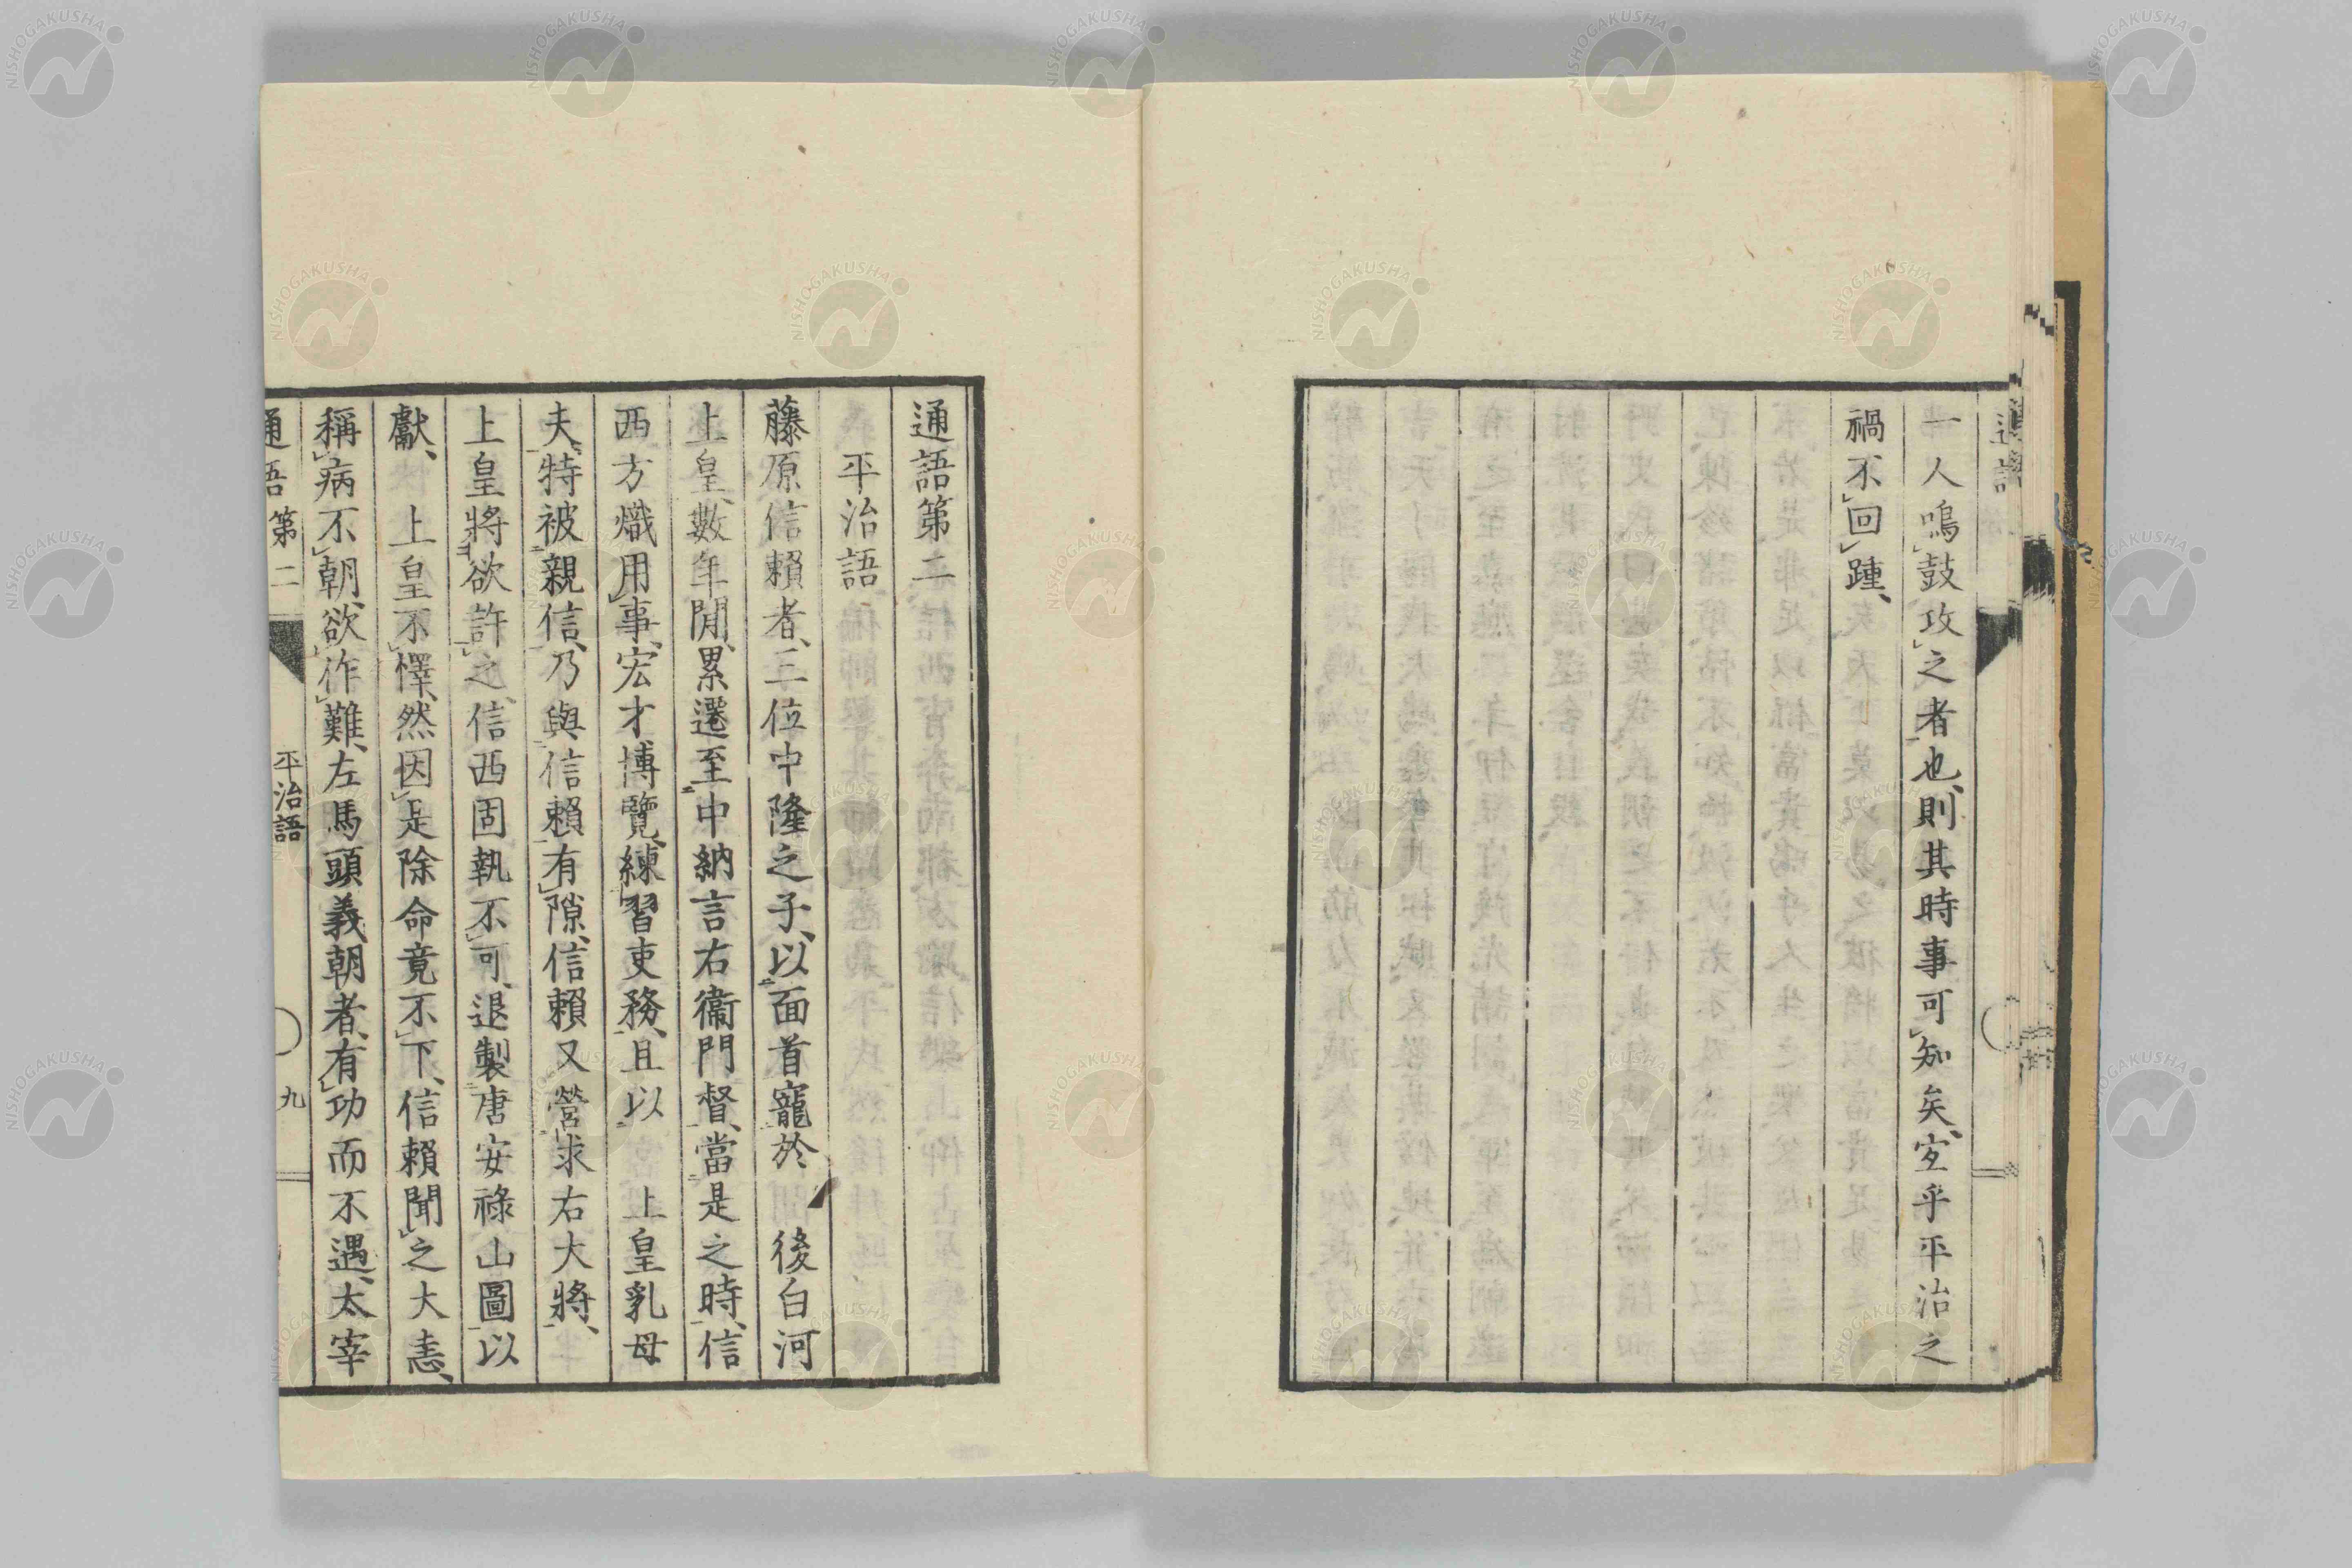 一人鳴鼓攻之者也、則其時事可知矣、宜乎平治之
禍不回踵、
通語第二
平治語
藤原信賴者、三位中隆之子、以面首寵於　後白河
上皇、數年閒、累遷至中納言右衞門督、當是之時、信
西方熾用事、宏才博覽、練習吏務、且以　上皇乳母
夫、特被親信、乃與信賴有隙、信賴又營求右大將、
上皇將欲許之、信西固執不可、退製唐安祿山圖以
獻、　上皇不懌、然因是除命竟不下、信賴聞之大恚、
稱病不朝、欲作難、左馬頭義朝者、有功而不遇、太宰
通語第二
平治語
九
NISHOGAKUSHA